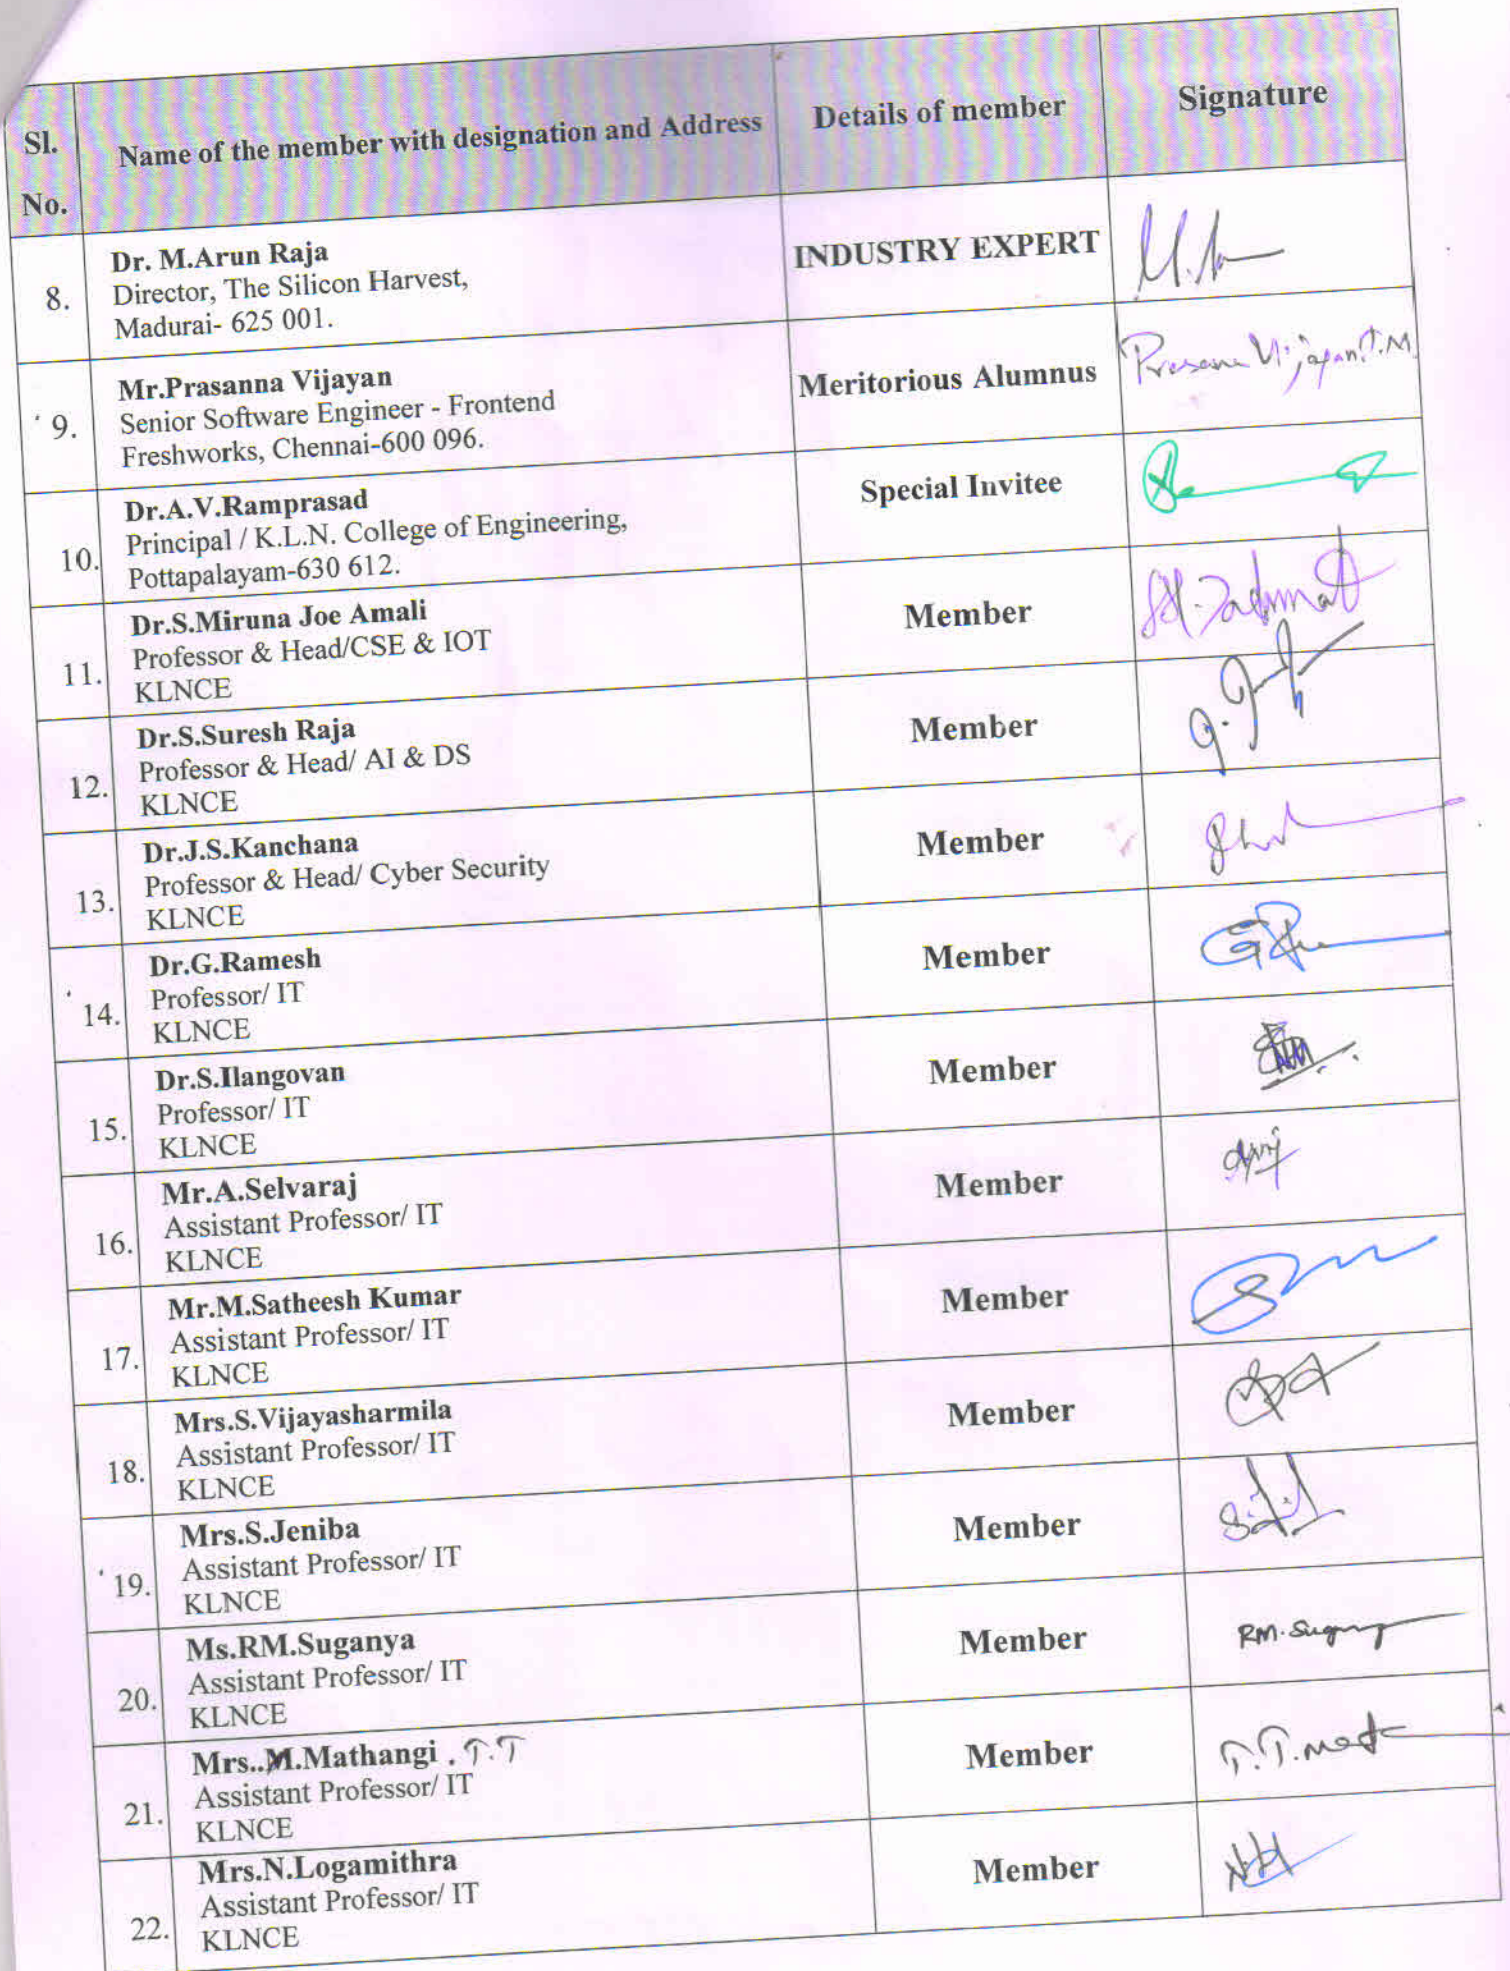 Sl.
No.
Name of the member with designation and Address
Details of member
Signature
8.
Dr. M.Arun Raja
Director, The Silicon Harvest,
Madurai- 625 001.
INDUSTRY EXPERT
9.
Mr.Prasanna Vijayan
Senior Software Engineer - Frontend
Freshworks, Chennai-600 096.
Meritorious Alumnus
10.
Dr.A.V.Ramprasad
Principal / K.L.N. College of Engineering,
Pottapalayam-630 612.
Special Invitee
11.
Dr.S.Miruna Joe Amali
Professor & Head/CSE & IOT
KLNCE
Member
12.
Dr.S.Suresh Raja
Professor & Head/ AI & DS
KLNCE
Member
13.
Dr.J.S.Kanchana
Professor & Head/ Cyber Security
KLNCE
Member
14.
Dr.G.Ramesh
Professor/ IT
KLNCE
Member
15.
Dr.S.Ilangovan
Professor/ IT
KLNCE
Member
16.
Mr.A.Selvaraj
Assistant Professor/ IT
KLNCE
Member
17.
Mr.M.Satheesh Kumar
Assistant Professor/ IT
KLNCE
Member
18.
Mrs.S.Vijayasharmila
Assistant Professor/ IT
KLNCE
Member
19.
Mrs.S.Jeniba
Assistant Professor/ IT
KLNCE
Member
20.
Ms.RM.Suganya
Assistant Professor/ IT
KLNCE
Member
RM. Suganya
21.
Mrs..M.Mathangi . T.T
Assistant Professor/ IT
KLNCE
Member
22.
Mrs.N.Logamithra
Assistant Professor/ IT
KLNCE
Member